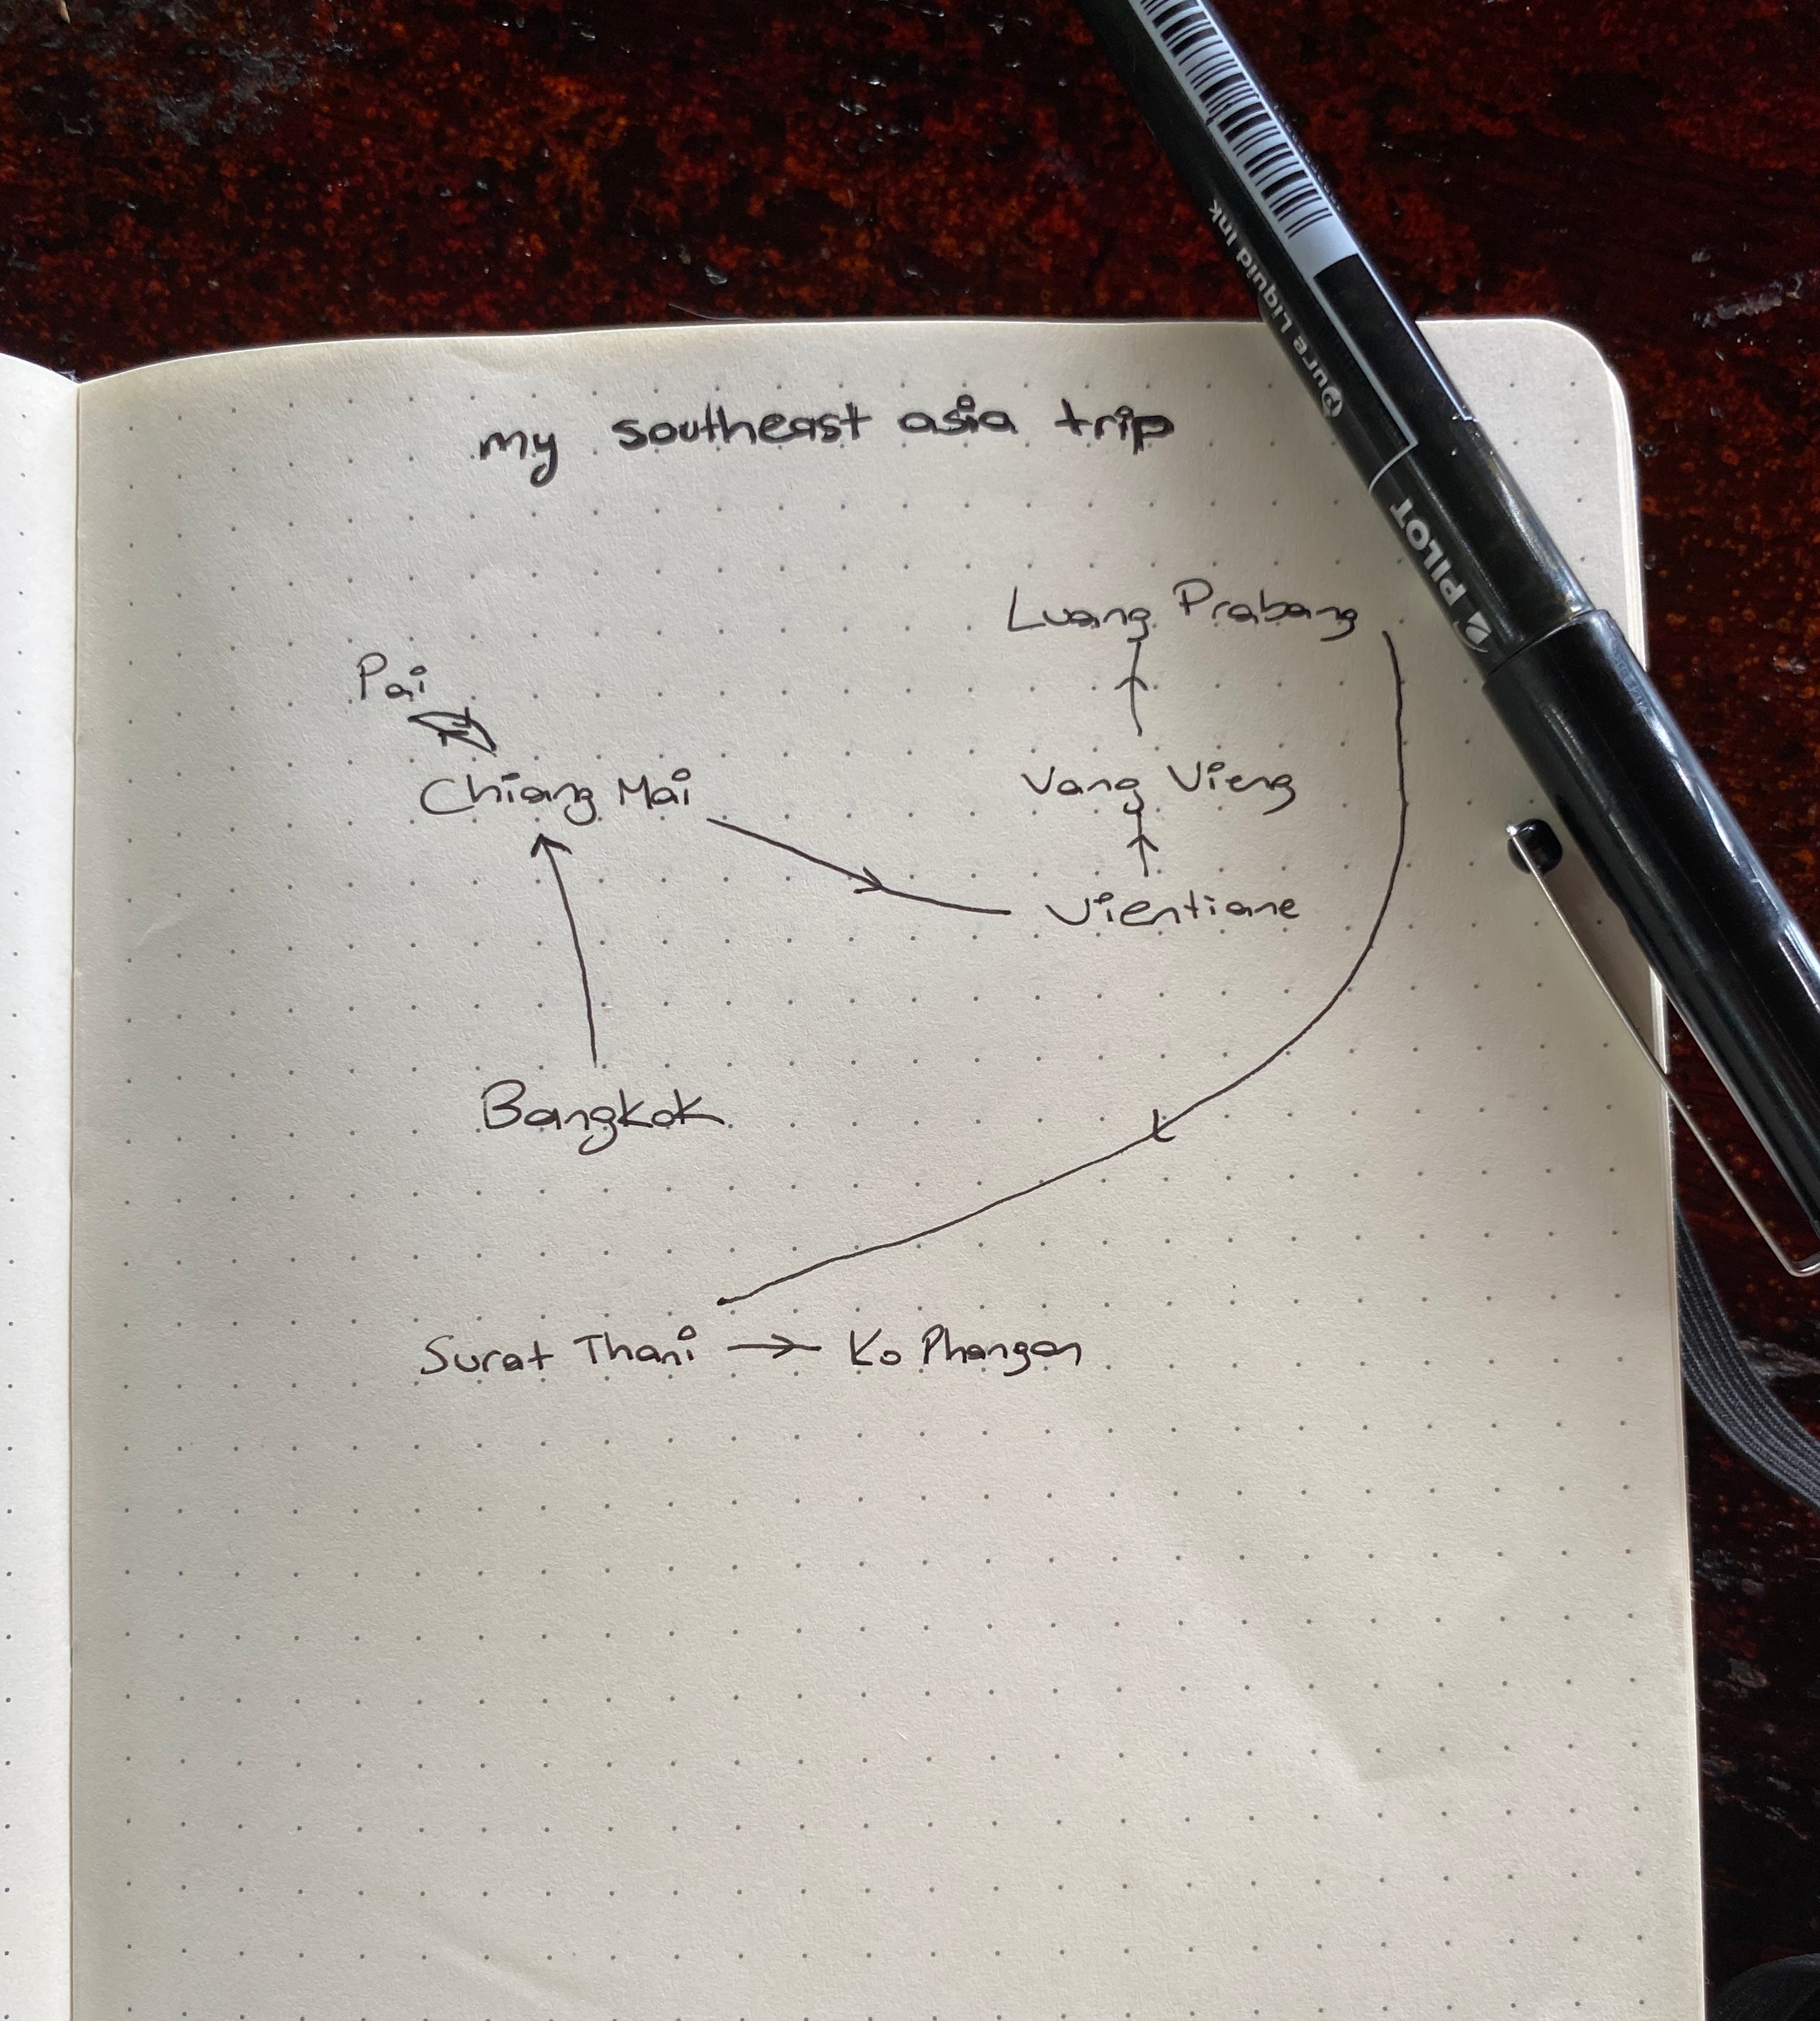 my southeast asia trip
Luang Prabang
Pai
Chiang Mai
Vang Vieng
Vientiane
Bangkok
Surat Thani → Ko Phangan
Pure Liquid Ink
PILOT